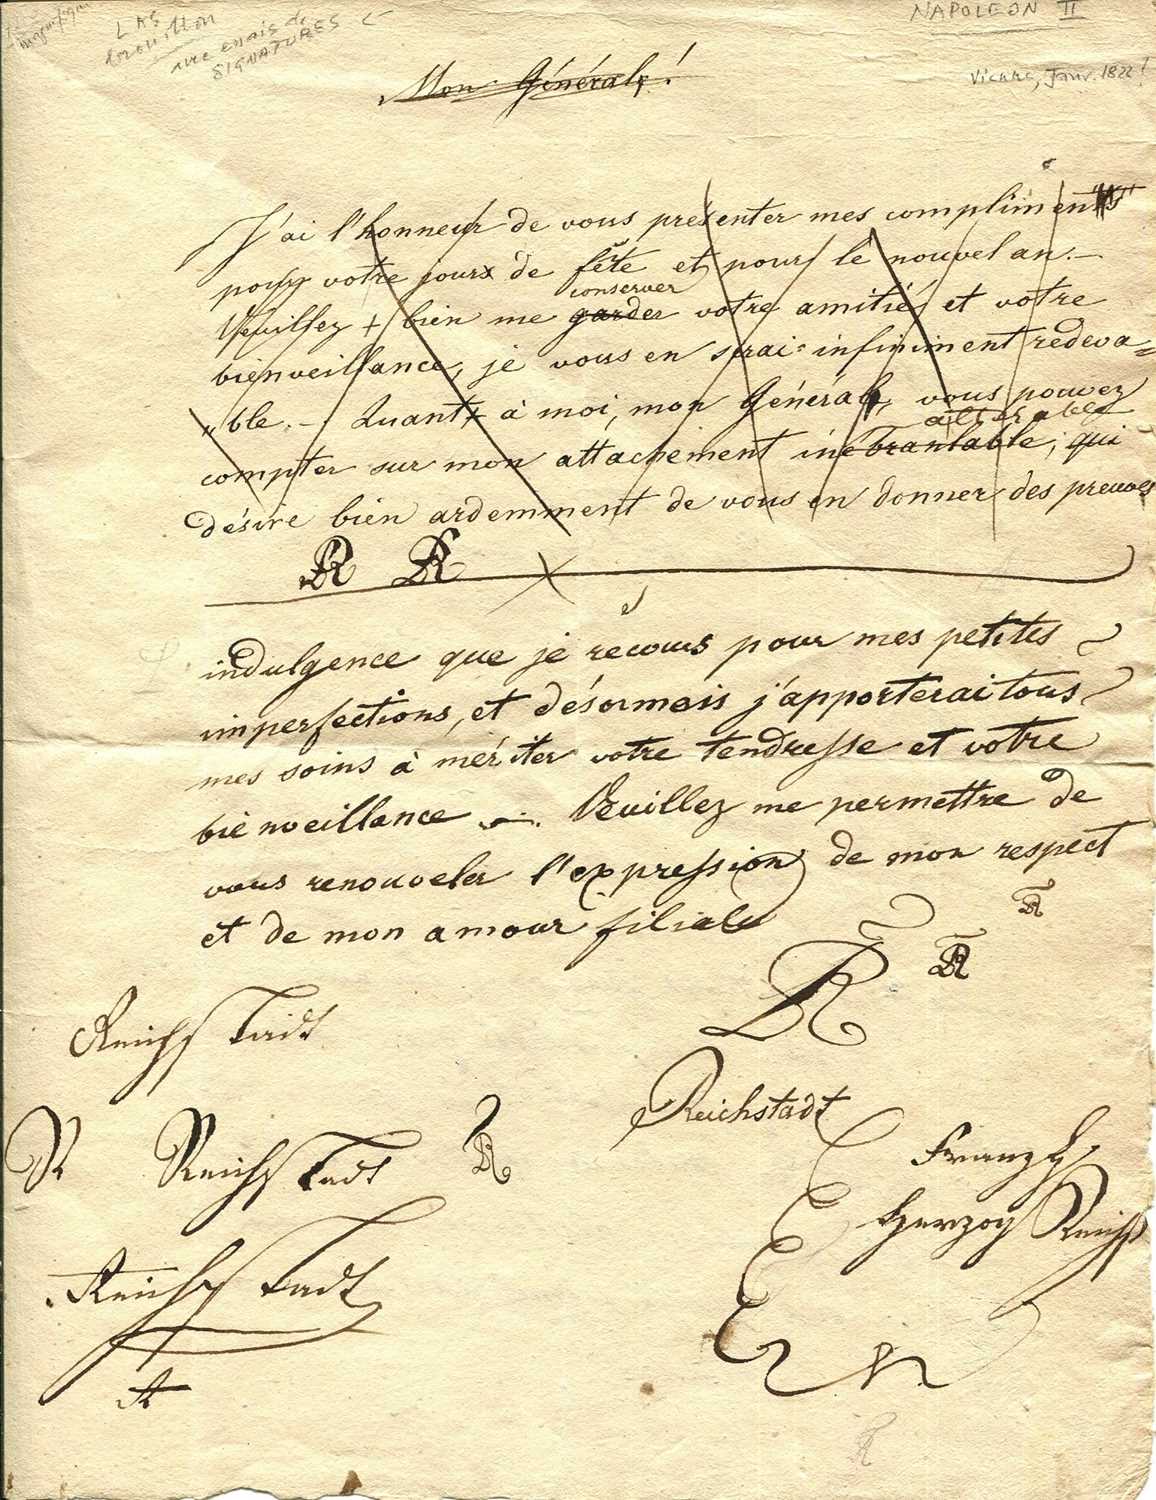 magnifique
LAS
brouillon
avec essais de
SIGNATURES
NAPOLEON II
Vienne, Janv. 1822!
Mon Général!
J'ai l'honneur de vous présenter mes compliments
pour votre jour de fête et pour le nouvel an. –
conserver
Veuillez bien me garder votre amitié et votre
bienveillance, je vous en serai infiniment redeva=
„ble. – Quant à moi, mon Général, vous pouvez
altérable
compter sur mon attachement inébranlable, qui
désire bien ardemment de vous en donner des preuves
R R
indulgence que je recours pour mes petites
imperfections, et désormais j'apporterai tous
mes soins à mériter votre tendresse et votre
bienveillance. Veuillez me permettre de
vous renouveler l'expression de mon respect
et de mon amour filial
R R R
Reichstadt
Reichstadt
R Reichstadt R
Franz
Herzog Reichs
Reichstadt
R
R